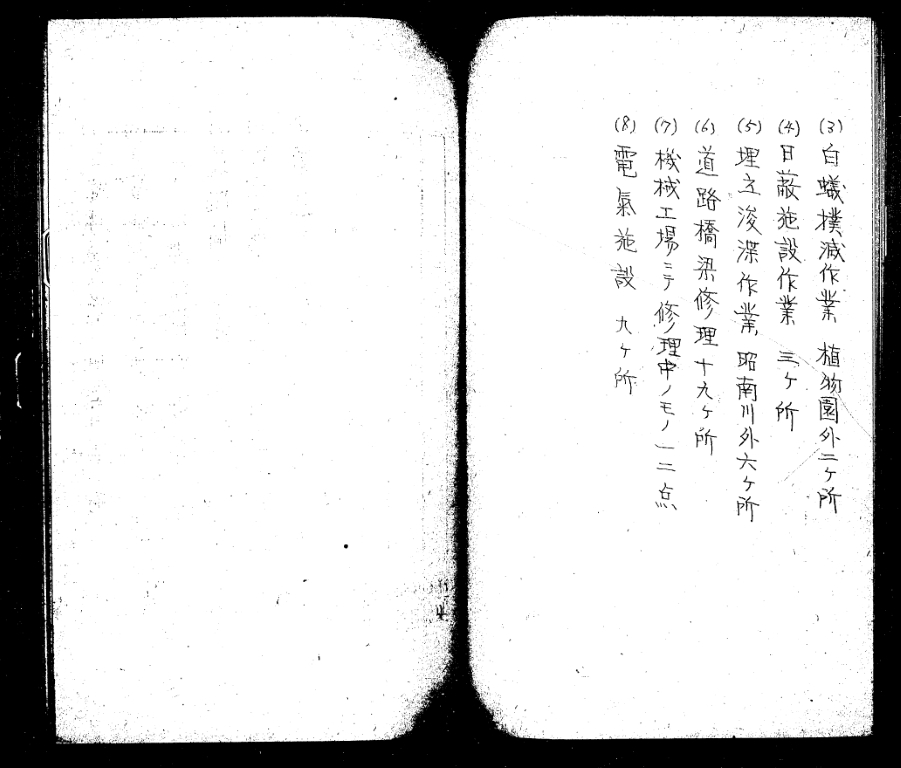 (3) 白蟻撲滅作業 植物園外二ヶ所
(4) 日蔽施設作業 三ヶ所
(5) 埋立浚渫作業 昭南川外六ヶ所
(6) 道路橋梁修理十九ヶ所
(7) 機械工場ニテ修理中ノモノ一二点
(8) 電氣施設 九ヶ所